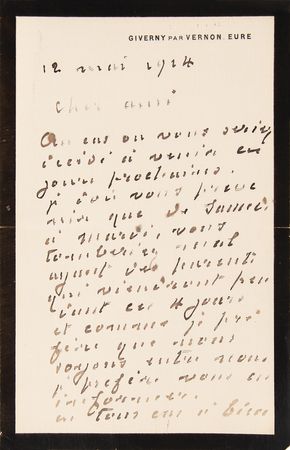 GIVERNY PAR VERNON, EURE
12 mai 1924
Cher ami
Au cas ou vous seriez
décidé à venir ces
jours prochains.
je dois vous préve
nir que de Samedi
à mardi, vous
tomberiez mal
ayant des parents
qui viendront pen
dant ces 4 jours
et comme je pré
fère que nous
soyons entre nous
je préfère vous en
informer.
en tous cas à bien